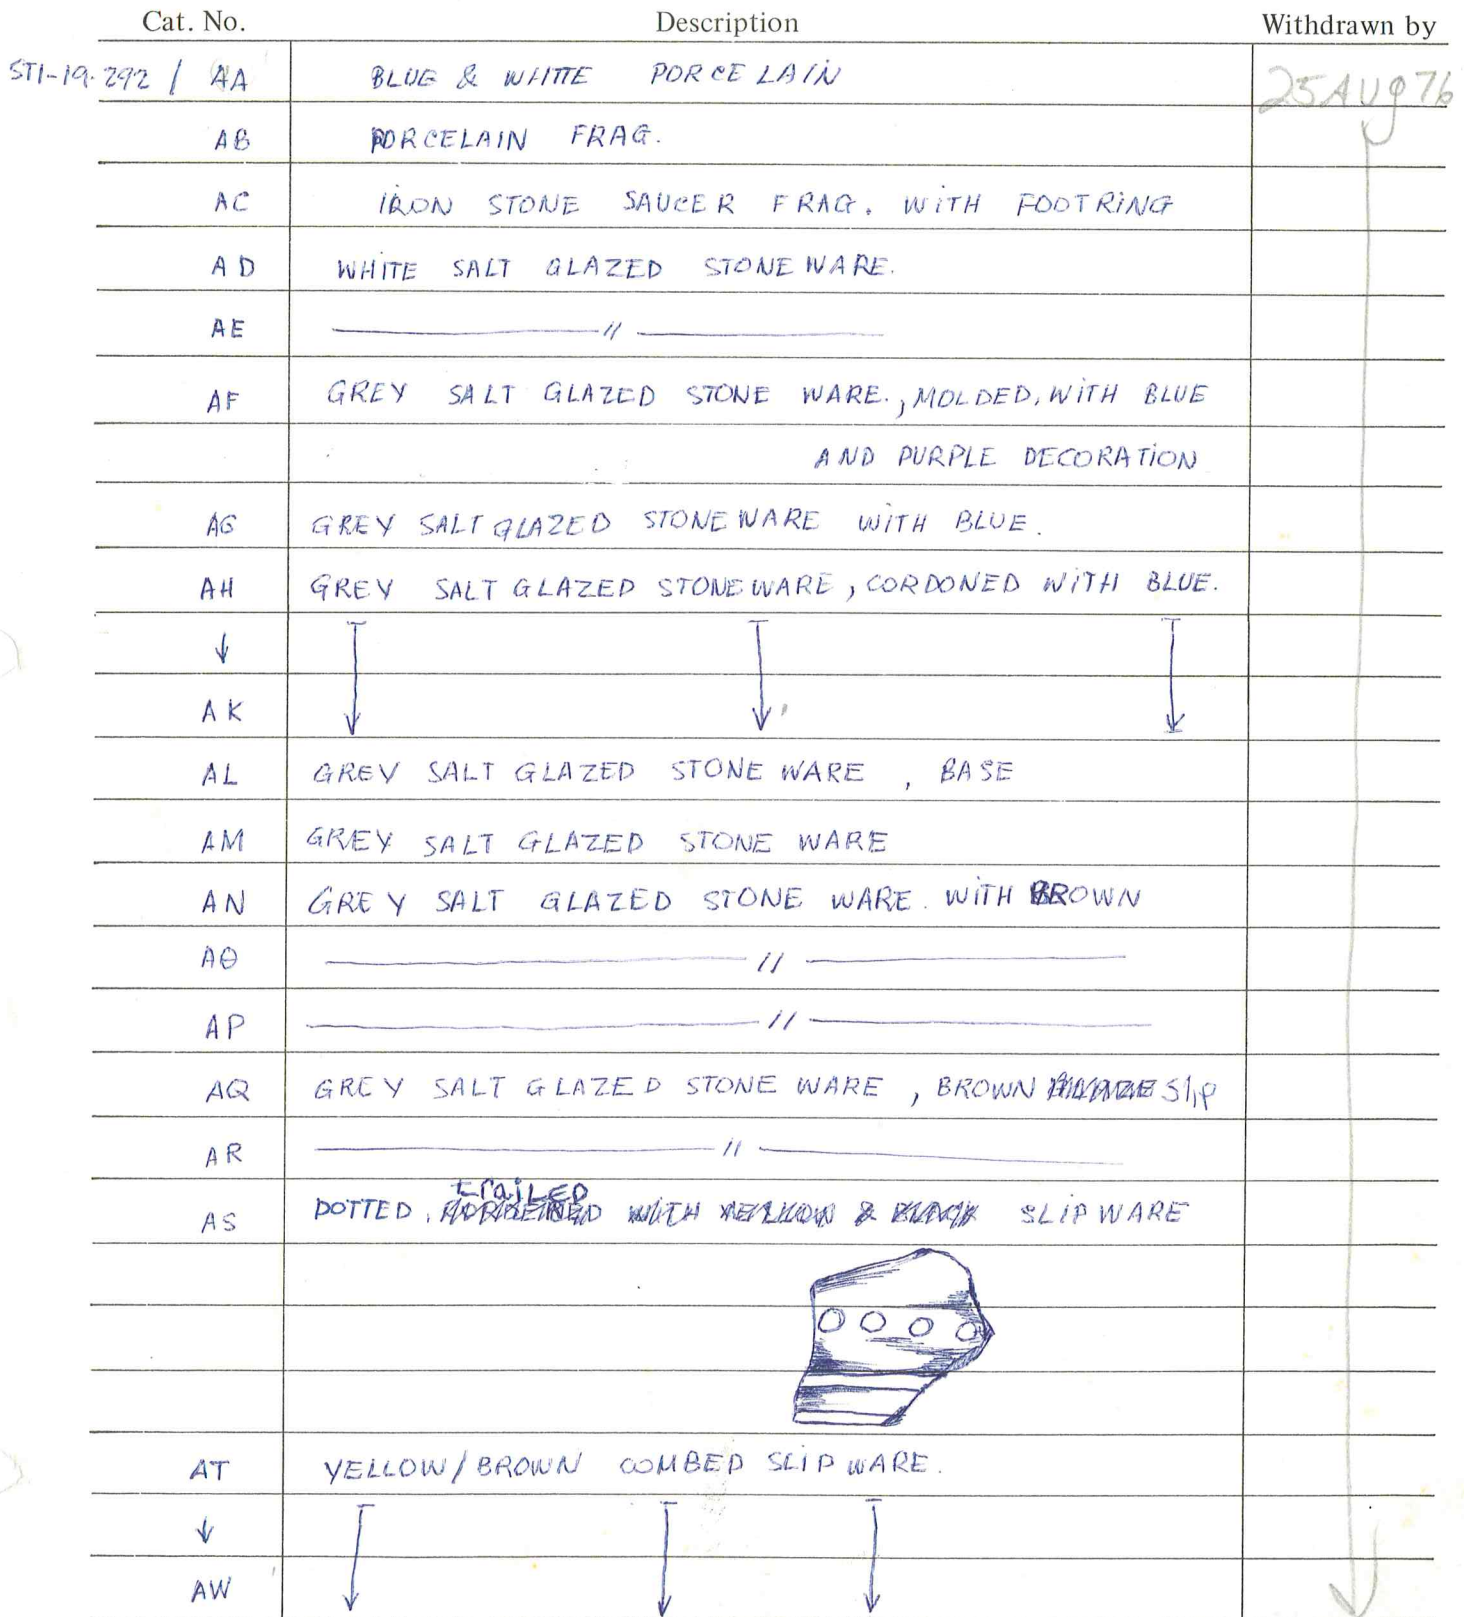 Cat. No. Description Withdrawn by
ST1-19-292 / AA BLUE & WHITE PORCELAIN 25 Aug 76
AB PORCELAIN FRAG.
AC IRON STONE SAUCER FRAG. WITH FOOTRING
AD WHITE SALT GLAZED STONE WARE.
AE ——— // ———
AF GREY SALT GLAZED STONE WARE., MOLDED, WITH BLUE
AND PURPLE DECORATION
AG GREY SALT GLAZED STONEWARE WITH BLUE.
AH GREY SALT GLAZED STONEWARE, CORDONED WITH BLUE.
↓
AK
AL GREY SALT GLAZED STONE WARE, BASE
AM GREY SALT GLAZED STONE WARE
AN GREY SALT GLAZED STONE WARE. WITH BROWN
AO ——— // ———
AP ——— // ———
AQ GREY SALT GLAZED STONE WARE, BROWN Slip
AR ——— // ———
AS DOTTED, trailed SLIPWARE
AT YELLOW/BROWN COMBED SLIP WARE.
↓
AW